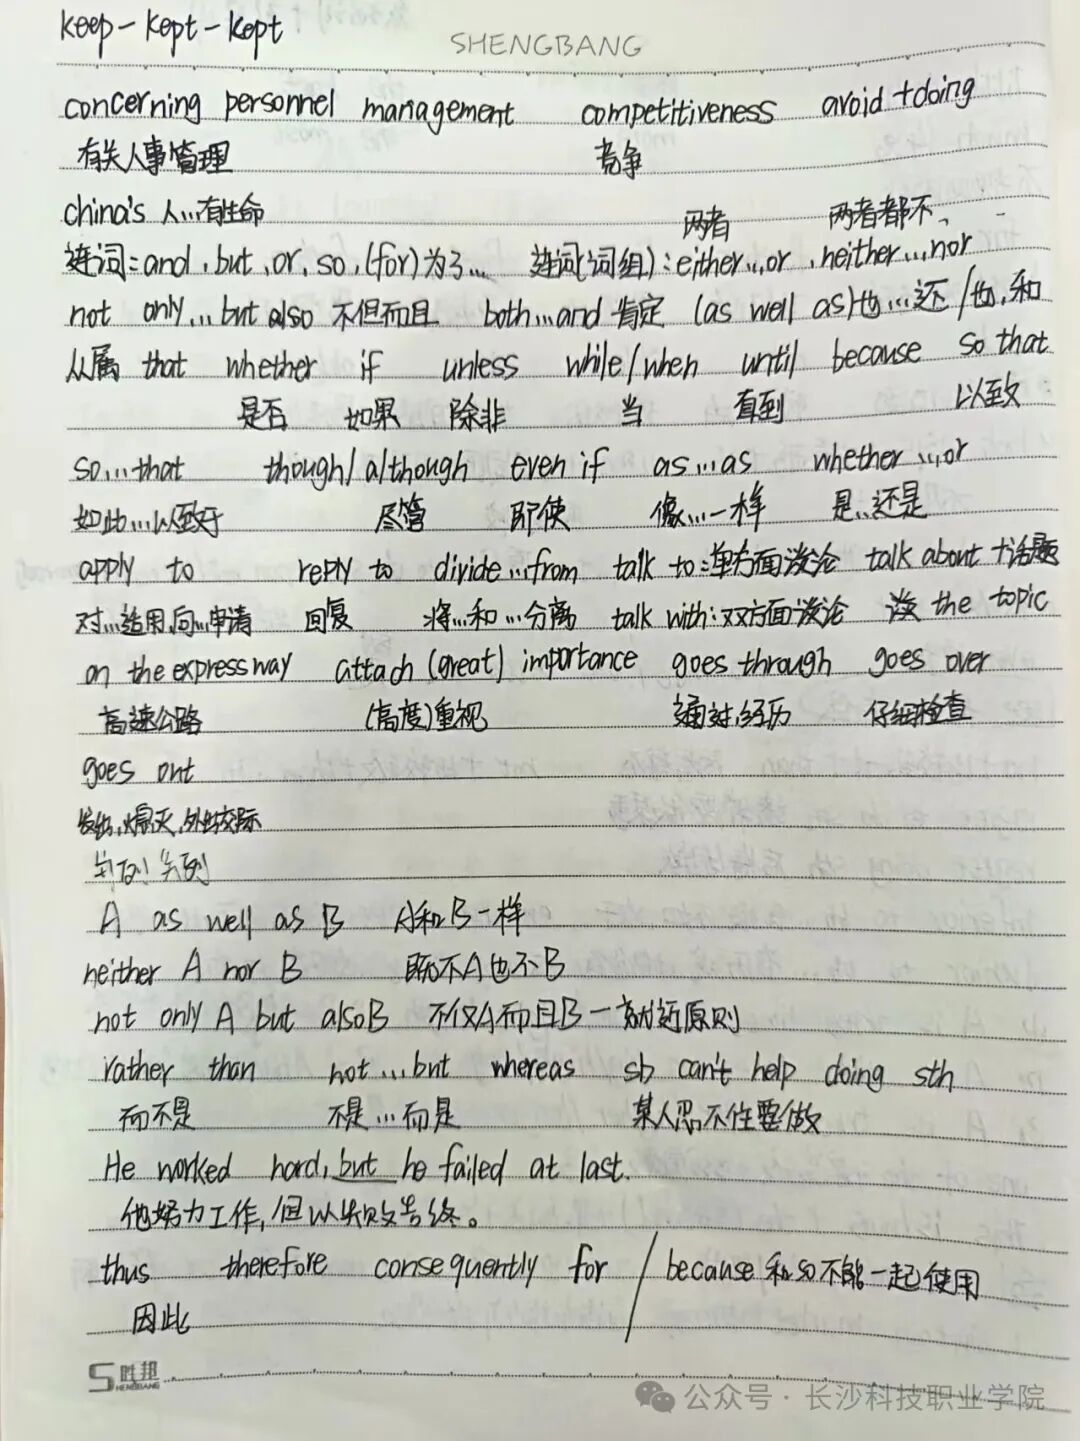 keep-kept-kept
SHENGBANG
concerning personnel management competitiveness avoid+doing
有关人事管理 竞争
china's 人...有性命
两者 两者都不、
连词:and,but,or,so,(for)为了... 连词(词组):either...or,neither...nor
not only...but also 不但而且 both...and 肯定 (as well as)也...还/也,和
从属 that whether if unless while/when until because so that
是否 如果 除非 当 直到 以致
so...that though/although even if as...as whether...or
如此...以致于 尽管 即使 像...一样 是..还是
apply to reply to divide...from talk to:单方面谈论 talk about +话题
对...适用,向...申请 回复 将...和...分离 talk with:双方面谈论 谈 the topic
on the expressway attach (great) importance goes through goes over
高速公路 (高度)重视 通过,经历 仔细检查
goes out
熄灭,外出交际
A as well as B A和B一样
neither A nor B 既不A也不B
not only A but also B 不仅A而且B-就近原则
rather than not...but whereas sb can't help doing sth
而不是 不是...而是 某人忍不住要做
He worked hard,but he failed at last.
他努力工作,但以失败告终。
thus therefore consequently for / because和so不能一起使用
因此
胜邦
SHENGBANG
公众号·长沙科技职业学院